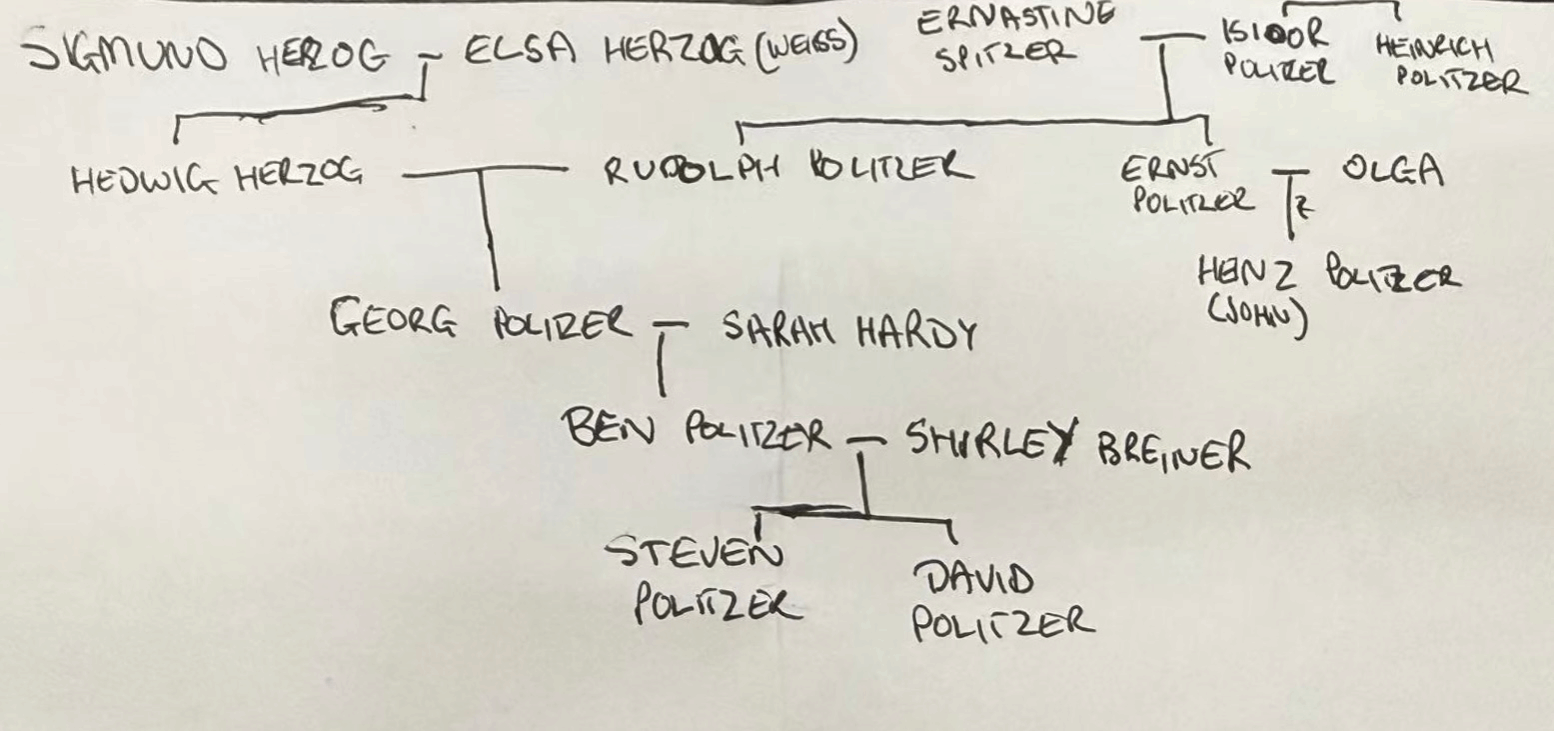 SIGMUND HERZOG - ELSA HERZOG (WEISS)
ERNASTINE
SPITZER
ISIDOR
POLITZER
HEINRICH
POLITZER
HEDWIG HERZOG
RUDOLPH POLITZER
ERNST
POLITZER
OLGA
?
HEINZ POLITZER
(JOHN)
GEORG POLITZER - SARAH HARDY
BEN POLITZER - SHIRLEY BREINER
STEVEN
POLITZER
DAVID
POLITZER